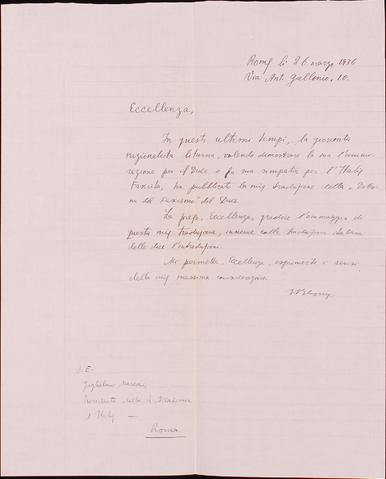 Roma li 26 marzo 1936
Via Ant. Gallonio, 10.
Eccellenza,
In questi ultimi tempi, la gioventù
nazionalista lituana, volendo dimostrare la sua ammi-
razione per il Duce e la sua simpatia per l'Italia
Fascista, ha pubblicato la mia traduzione della "Dottri-
na del Fascismo" del Duce.
La prego, Eccellenza, gradire l'ommaggio di
questa mia traduzione, insieme colla traduzione italiana
delle due
Mi permetta, Eccellenza, esprimerle i sensi
della mia massima considerazione
S. E.
Guglielmo Marconi
Presidente della R. Accademia
d'Italia
Roma